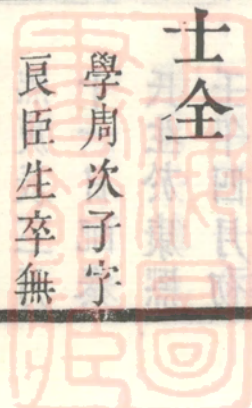 士全
學周次子字
良臣生卒無